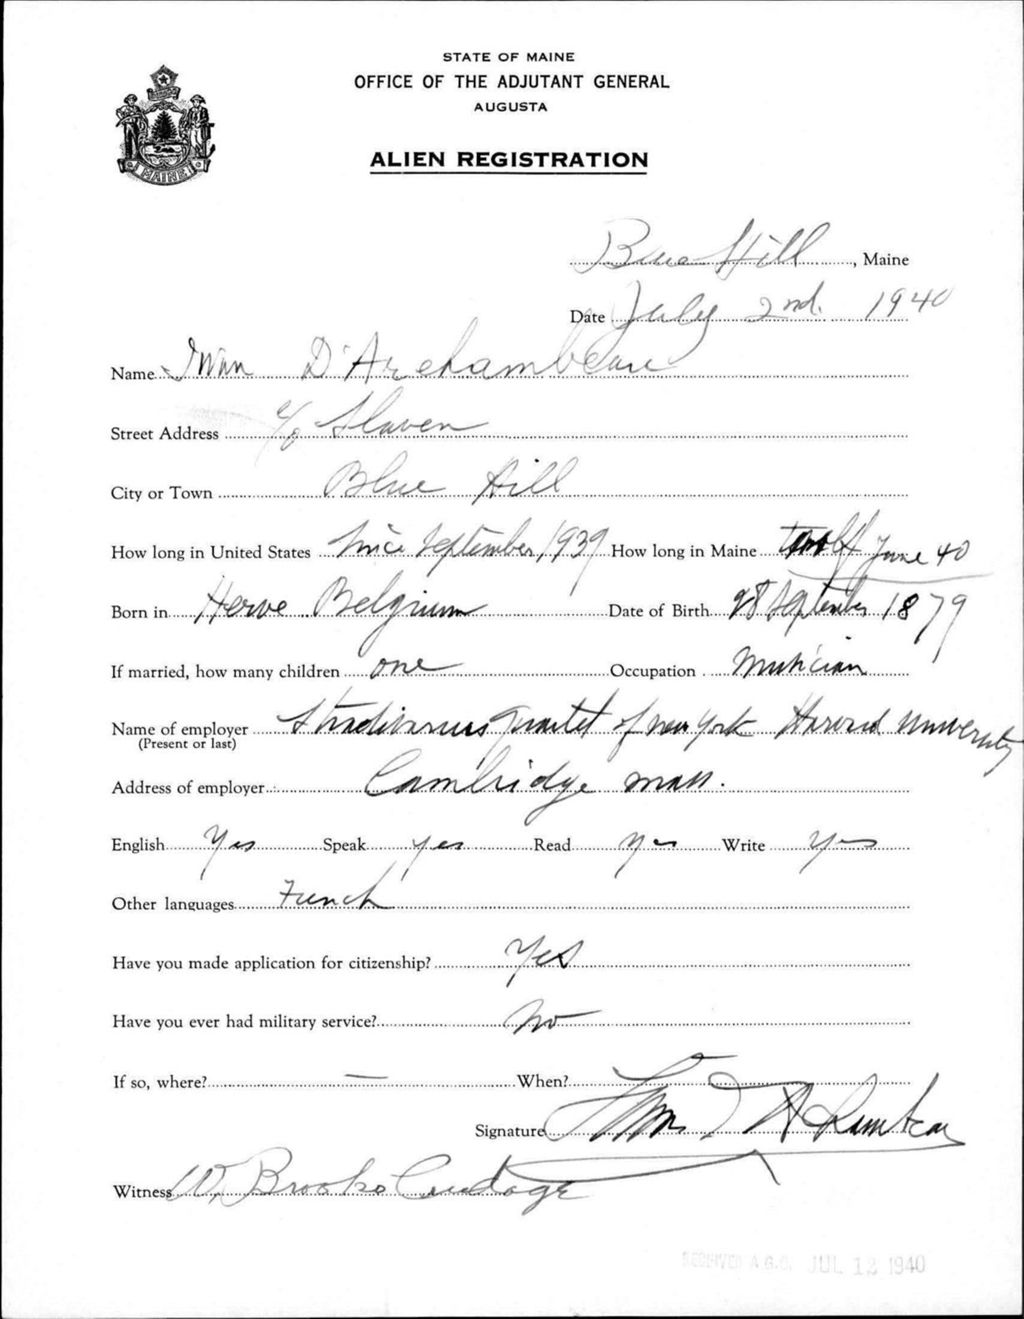 STATE OF MAINE
OFFICE OF THE ADJUTANT GENERAL
AUGUSTA
ALIEN REGISTRATION
MAINE
Blue Hill, Maine
Date July 2nd. 1940
Name Iwan D'Archambeau
Street Address c/o Slaven
City or Town Blue Hill
How long in United States Since September 1939 How long in Maine June 40
Born in Herve Belgium Date of Birth 28 September 1879
If married, how many children one Occupation Musician
Name of employer Stradivarius Quartet of New York Harvard University
(Present or last)
Address of employer Cambridge Mass.
English Yes Speak yes Read yes Write yes
Other languages French
Have you made application for citizenship? Yes
Have you ever had military service? No
If so, where? — When?
Signature Iwan D'Archambeau
Witness W. Brooks
RECEIVED A.G.O. JUL 12 1940